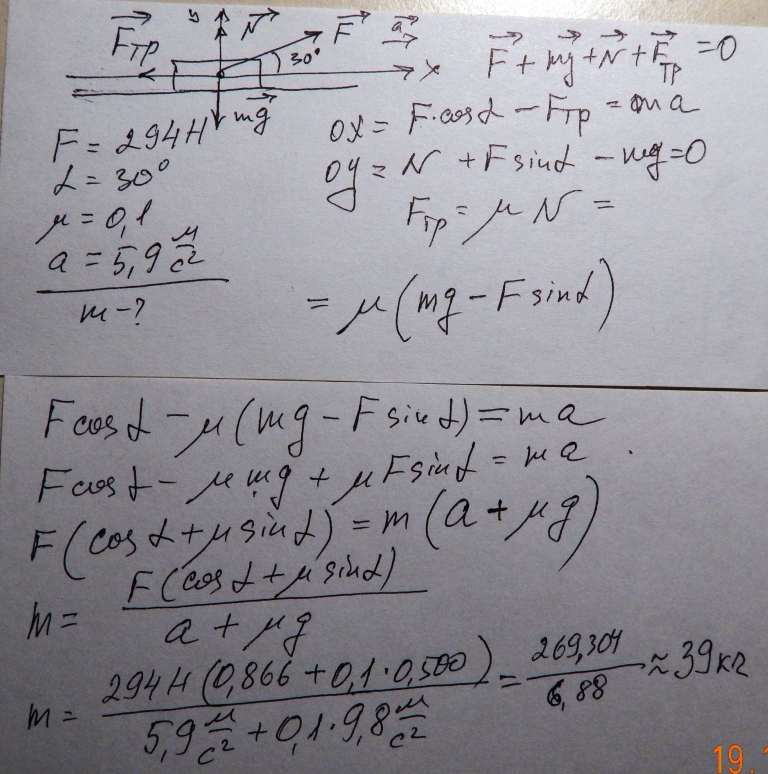 y N⃗ F⃗ a⃗
F⃗тр 30° x
mg⃗
F⃗ + mg⃗ + N⃗ + F⃗тр = 0
F = 294 Н
α = 30°
μ = 0,1
a = 5,9 м/с²
m - ?
OX = F·cosα - Fтр = ma
Oy = N + F sinα - mg = 0
Fтр = μN =
= μ(mg - F sinα)
F cosα - μ(mg - F sinα) = ma
F cosα - μmg + μF sinα = ma
F(cosα + μ sinα) = m(a + μg)
m = F(cosα + μ sinα) / a + μg
m = 294 Н (0,866 + 0,1·0,500) / 5,9 м/с² + 0,1·9,8 м/с² = 269,304 / 6,88 ≈ 39 кг
19.